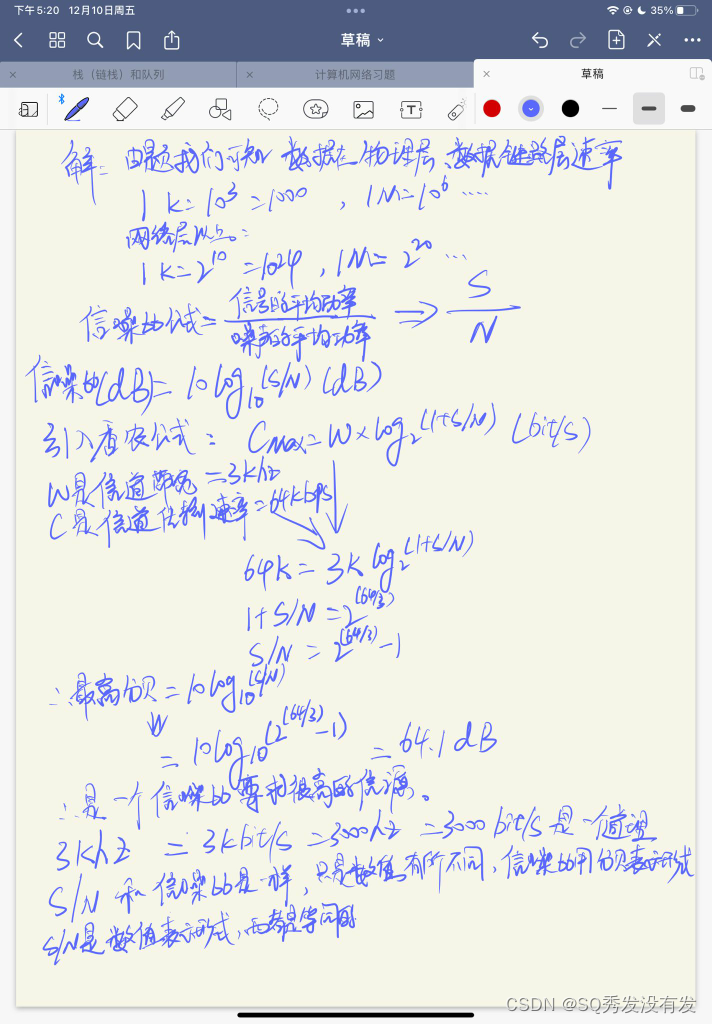 下午5:20 12月10日周五
35%
草稿
栈（链栈）和队列
计算机网络习题
草稿
解：由题我们可知 数据在物理层、数据链路层速率
1K=10³=1000，1M=10⁶ ....
网络层以上：
1K=2¹⁰=1024，1M=2²⁰ ...
信噪比公式=信号的平均功率/噪声的平均功率 ⇒ S/N
信噪比(dB)=10log₁₀(S/N) (dB)
引入香农公式：Cmax=W×log₂(1+S/N) (bit/s)
W是信道带宽=3khz
C是信道传输速率=64kbps
64k=3k log₂(1+S/N)
1+S/N=2^(64/3)
S/N=2^(64/3)-1
∴最高分贝=10log₁₀(S/N)
=10log₁₀(2^(64/3)-1) =64.1dB
∴是一个信噪比要求很高的信源。
3khz=3kbit/s=3000hz=3000bit/s是一个道理
S/N和信噪比是一样，只是数值有所不同，信噪比用分贝表示形式
S/N是数值表示形式，两都是等同的
CSDN @SQ秀发没有发